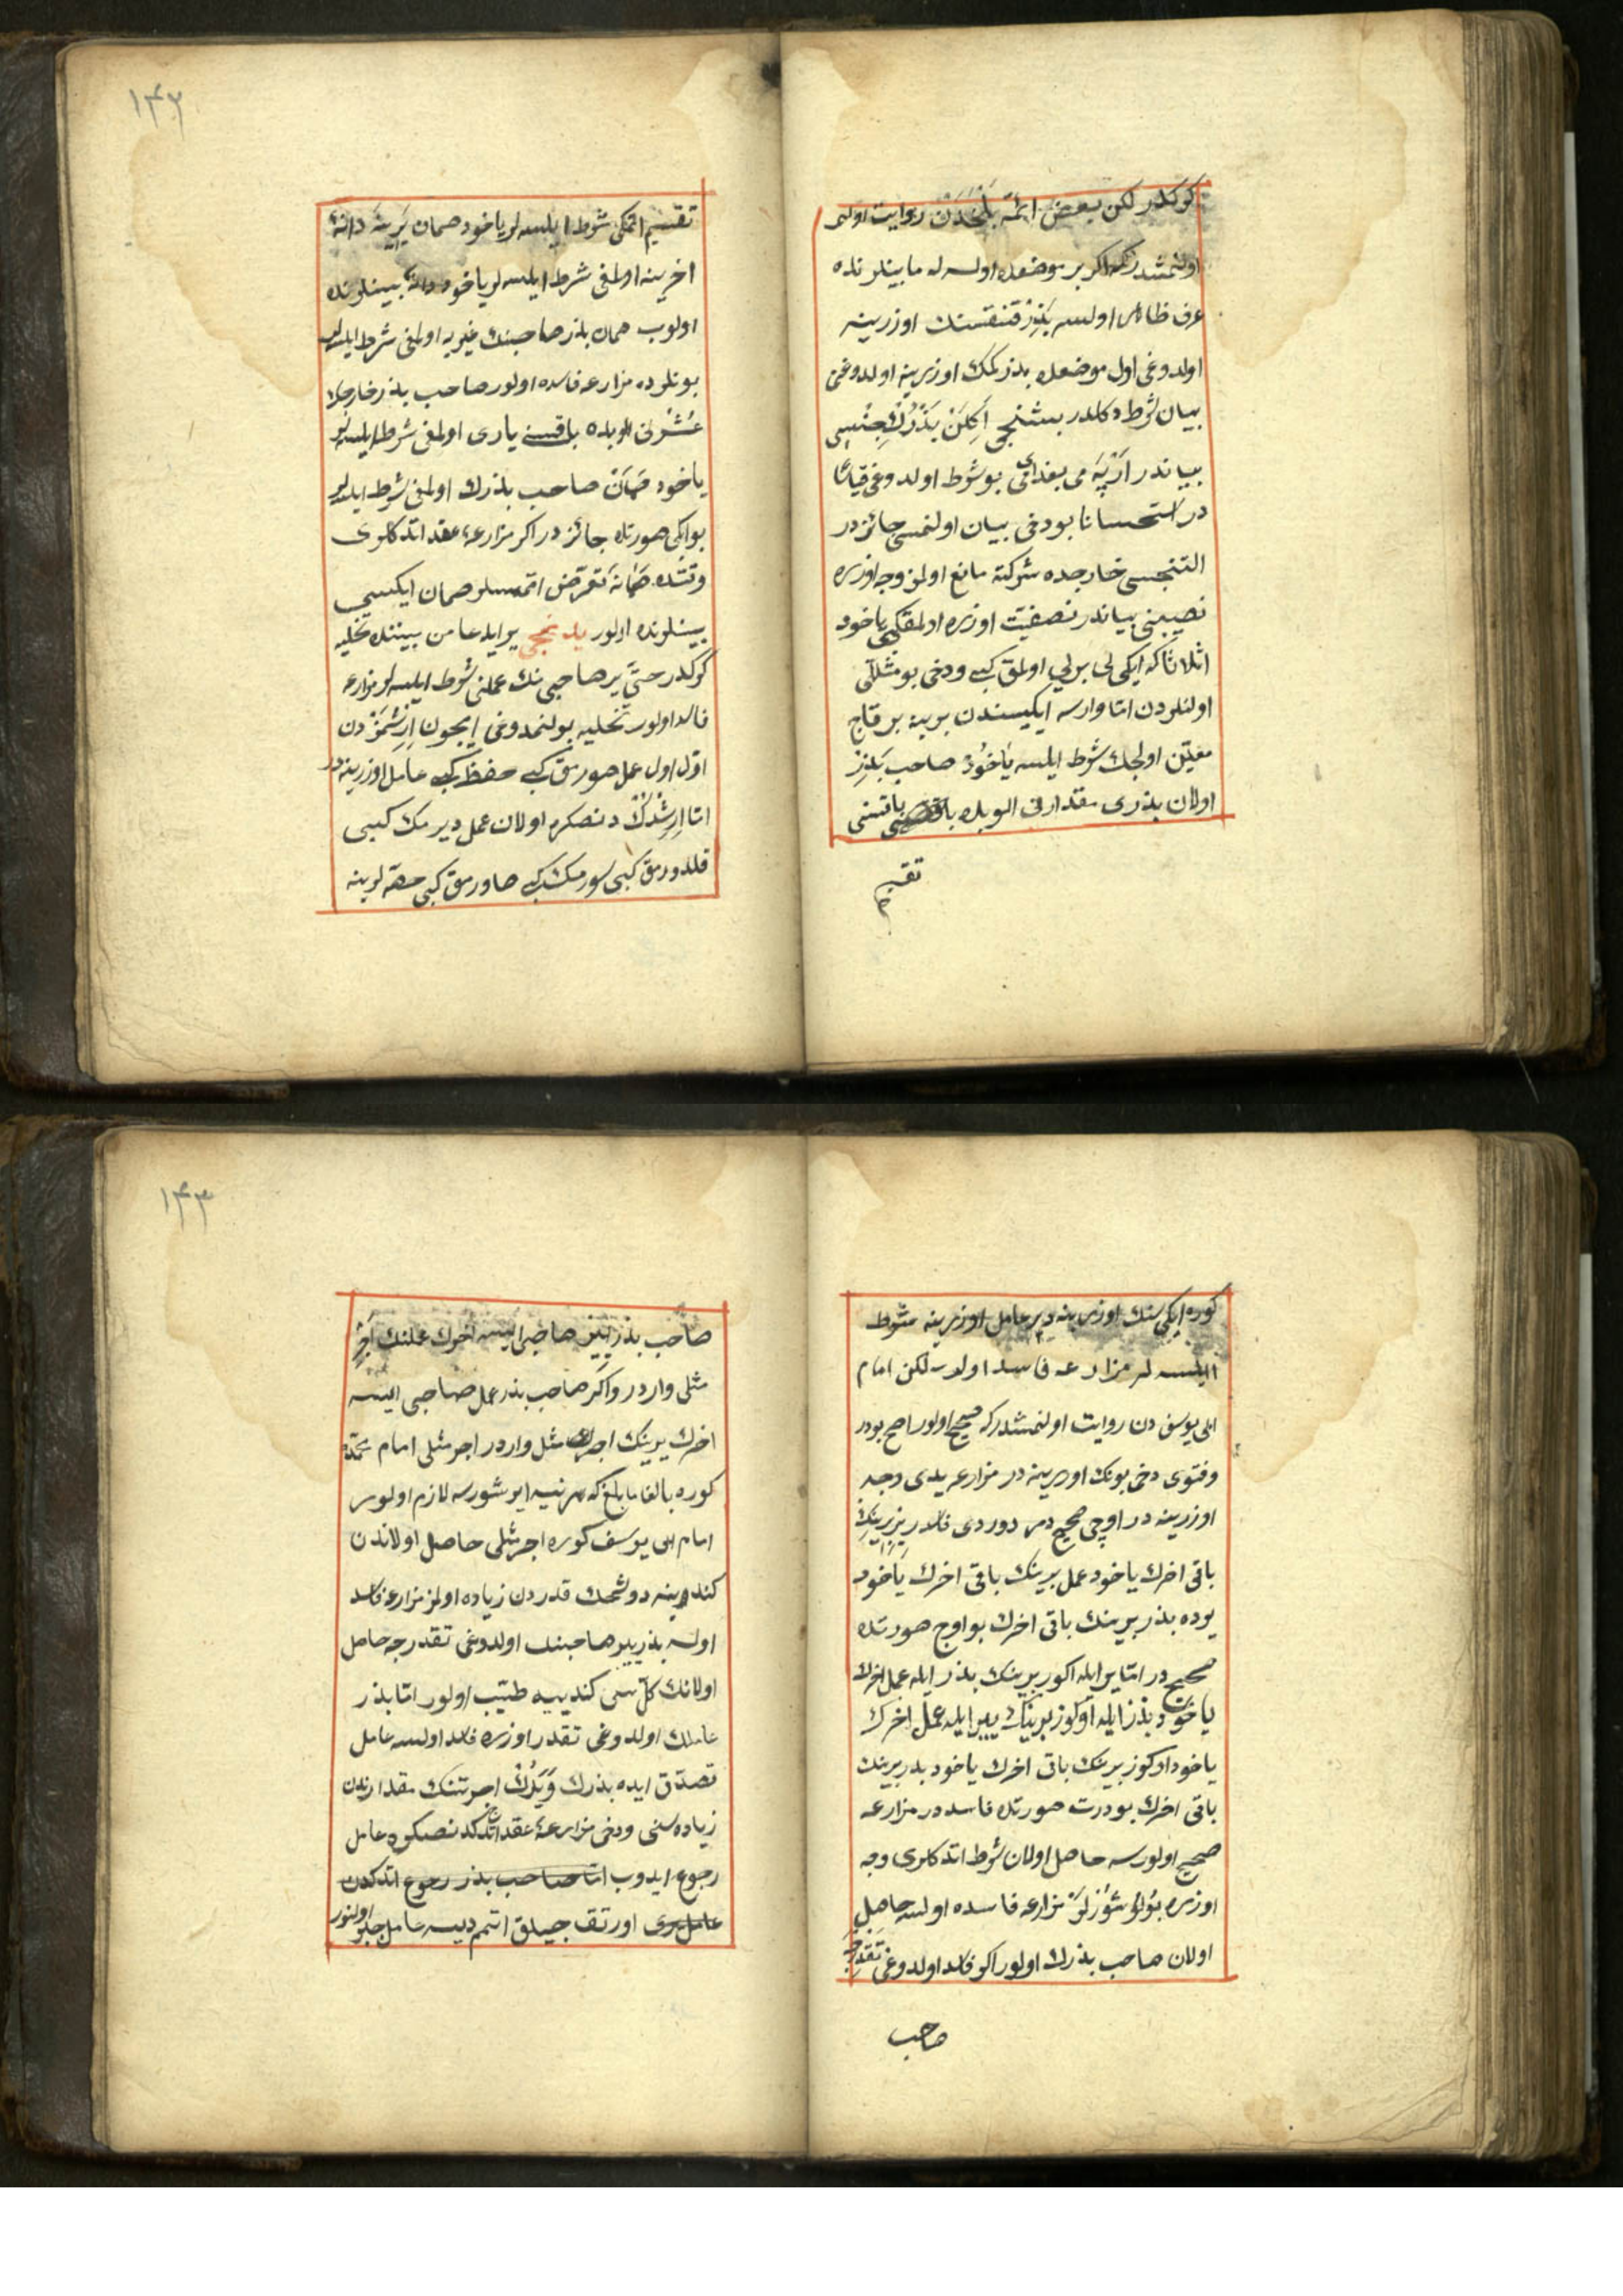 كركدر لكن بعض ائمّهٔ بلخدن روايت اولنمـ
اولنمشدركه اكر بر موضعده اولسه لر مابينلرنده
عرف ظاهر اولسه بذر قنقسنك اوزرينه
اولدوغى اول موضعده بذر كمك اوزرينه اولدوغى
بيان شرط دكلدر بشنجى اكلن بذرك جنسى
بياندر ارپه مى بغداى مى بو شرط اولدوغى قياسًا
در استحسانا بو دخى بيان اولنمسى جائزدر
التنجسى خارجده شركته مانع اولمز وجه اوزره
نصيبنى بياندر نصفيّت اوزره اولمقكبى ياخود
اثلاثا كه ايكى لى برلى اولمق كبى ودخى بو مثللى
اولنلردن امّا وارسه ايكيسندن برينه بر قاچ
معيّن اولچك شرط ايلسه ياخود صاحب بذر
اولان بذرى مقدارنى الوبده باقسنى
تقسيم
١٤٢
تقسيم اتمكى شرط ايلسه لر ياخود صمان برينه دانهٔ
اخرينه اولمغى شرط ايلسه لر ياخود دانه بينلرنده
اولوب صمان بذر صاحبنك غيريه اولمغى شرط ايلسه لر
بونلرده مزارعه فاسده اولور صاحب بذر خارجك
عشرنى الوبده باقسى يارى اولمغى شرط ايلسه لر
ياخود صمان صاحب بذرك اولمغى شرط ايلسه لر
بو ايكى صورتده جائزدر اكر مزارعهٔ عقد اتدكلرى
وقتده صمانه تعرّض اتمسلر صمان ايكسى
بينلرنده اولور يدنجى ير ايله عامل بيننده تخليه
كركدر حتّى ير صاحبى نك عملنى شرط ايلسه لر مزارعه
فاسد اولور تخليه بولنمدوغى ايچون ارشمزدن
اوّل اول عمل صورمق كبى حفظ كبى عامل اوزرينه در
امّا ارشدكدنصكره اولان عمل ديرمك كبى
قلدورمق كبى سورمك كبى صاورمق كبى حصّه لرينه
كوره ايكى سنك اوزرينه در عامل اوزرينه شرط
ايلسه لر مزارعه فاسد اولور لكن امام
ابى يوسف دن روايت اولنمشدركه صحيح اولور اصح بودر
وفتوى دخى بونك اوزرينه در مزارعه يدى وجه
اوزرينه در اوچى صحيح در دوردى فاسد در ير برينك
باقى اخرك ياخود عمل برينك باقى اخرك ياخود
يرده بذر برينك باقى اخرك بو اوچ صورتده
صحيح در امّا ير ايله اكوز برينك بذر ايله عمل اخرك
ياخود بذر ايله اوكوز برينك ير ايله عمل اخرك
ياخود اوكوز برينك باقى اخرك ياخود بذر برينك
باقى اخرك بو درت صورتده فاسد در مزارعه
صحيح اولورسه حاصل اولان شرط اتدكلرى وجه
اوزره بولوشورلر مزارعه فاسده اولسه حاصل
اولان صاحب بذرك اولور اكر فاسد اولدوغى تقديرجه
صاحب
١٤٣
صاحب بذر ير صاحبى ايسه اخرك عملنك اجر
مثلى واردر واكر صاحب بذر عمل صاحبى ايسه
اخرك يرينك اجر مثل واردر اجر مثلى امام محمّده
كوره بالغا ما بلغ كه هر نيه ايرشورسه لازم اولور
امام ابى يوسف كوره اجر مثلى حاصل اولاندن
كندوينه دوشجك قدردن زياده اولمز مزارعه فاسد
اولسه بذر ير صاحبنك اولدوغى تقديرجه حاصل
اولانك كلّ سى كندييه طيّب اولور امّا بذر
عاملك اولدوغى تقدير اوزره فاسد اولسه عامل
تصدّق ايده بذرك ويرك اجرتنك مقدارندن
زياده سنى ودخى مزارعهٔ عقد اتدكدنصكره عامل
رجوع ايدوب امّا صاحب بذر رجوع اتدكدن
عامل يرى اورتقجيلق اتمم ديسه عامل جبر اولنور